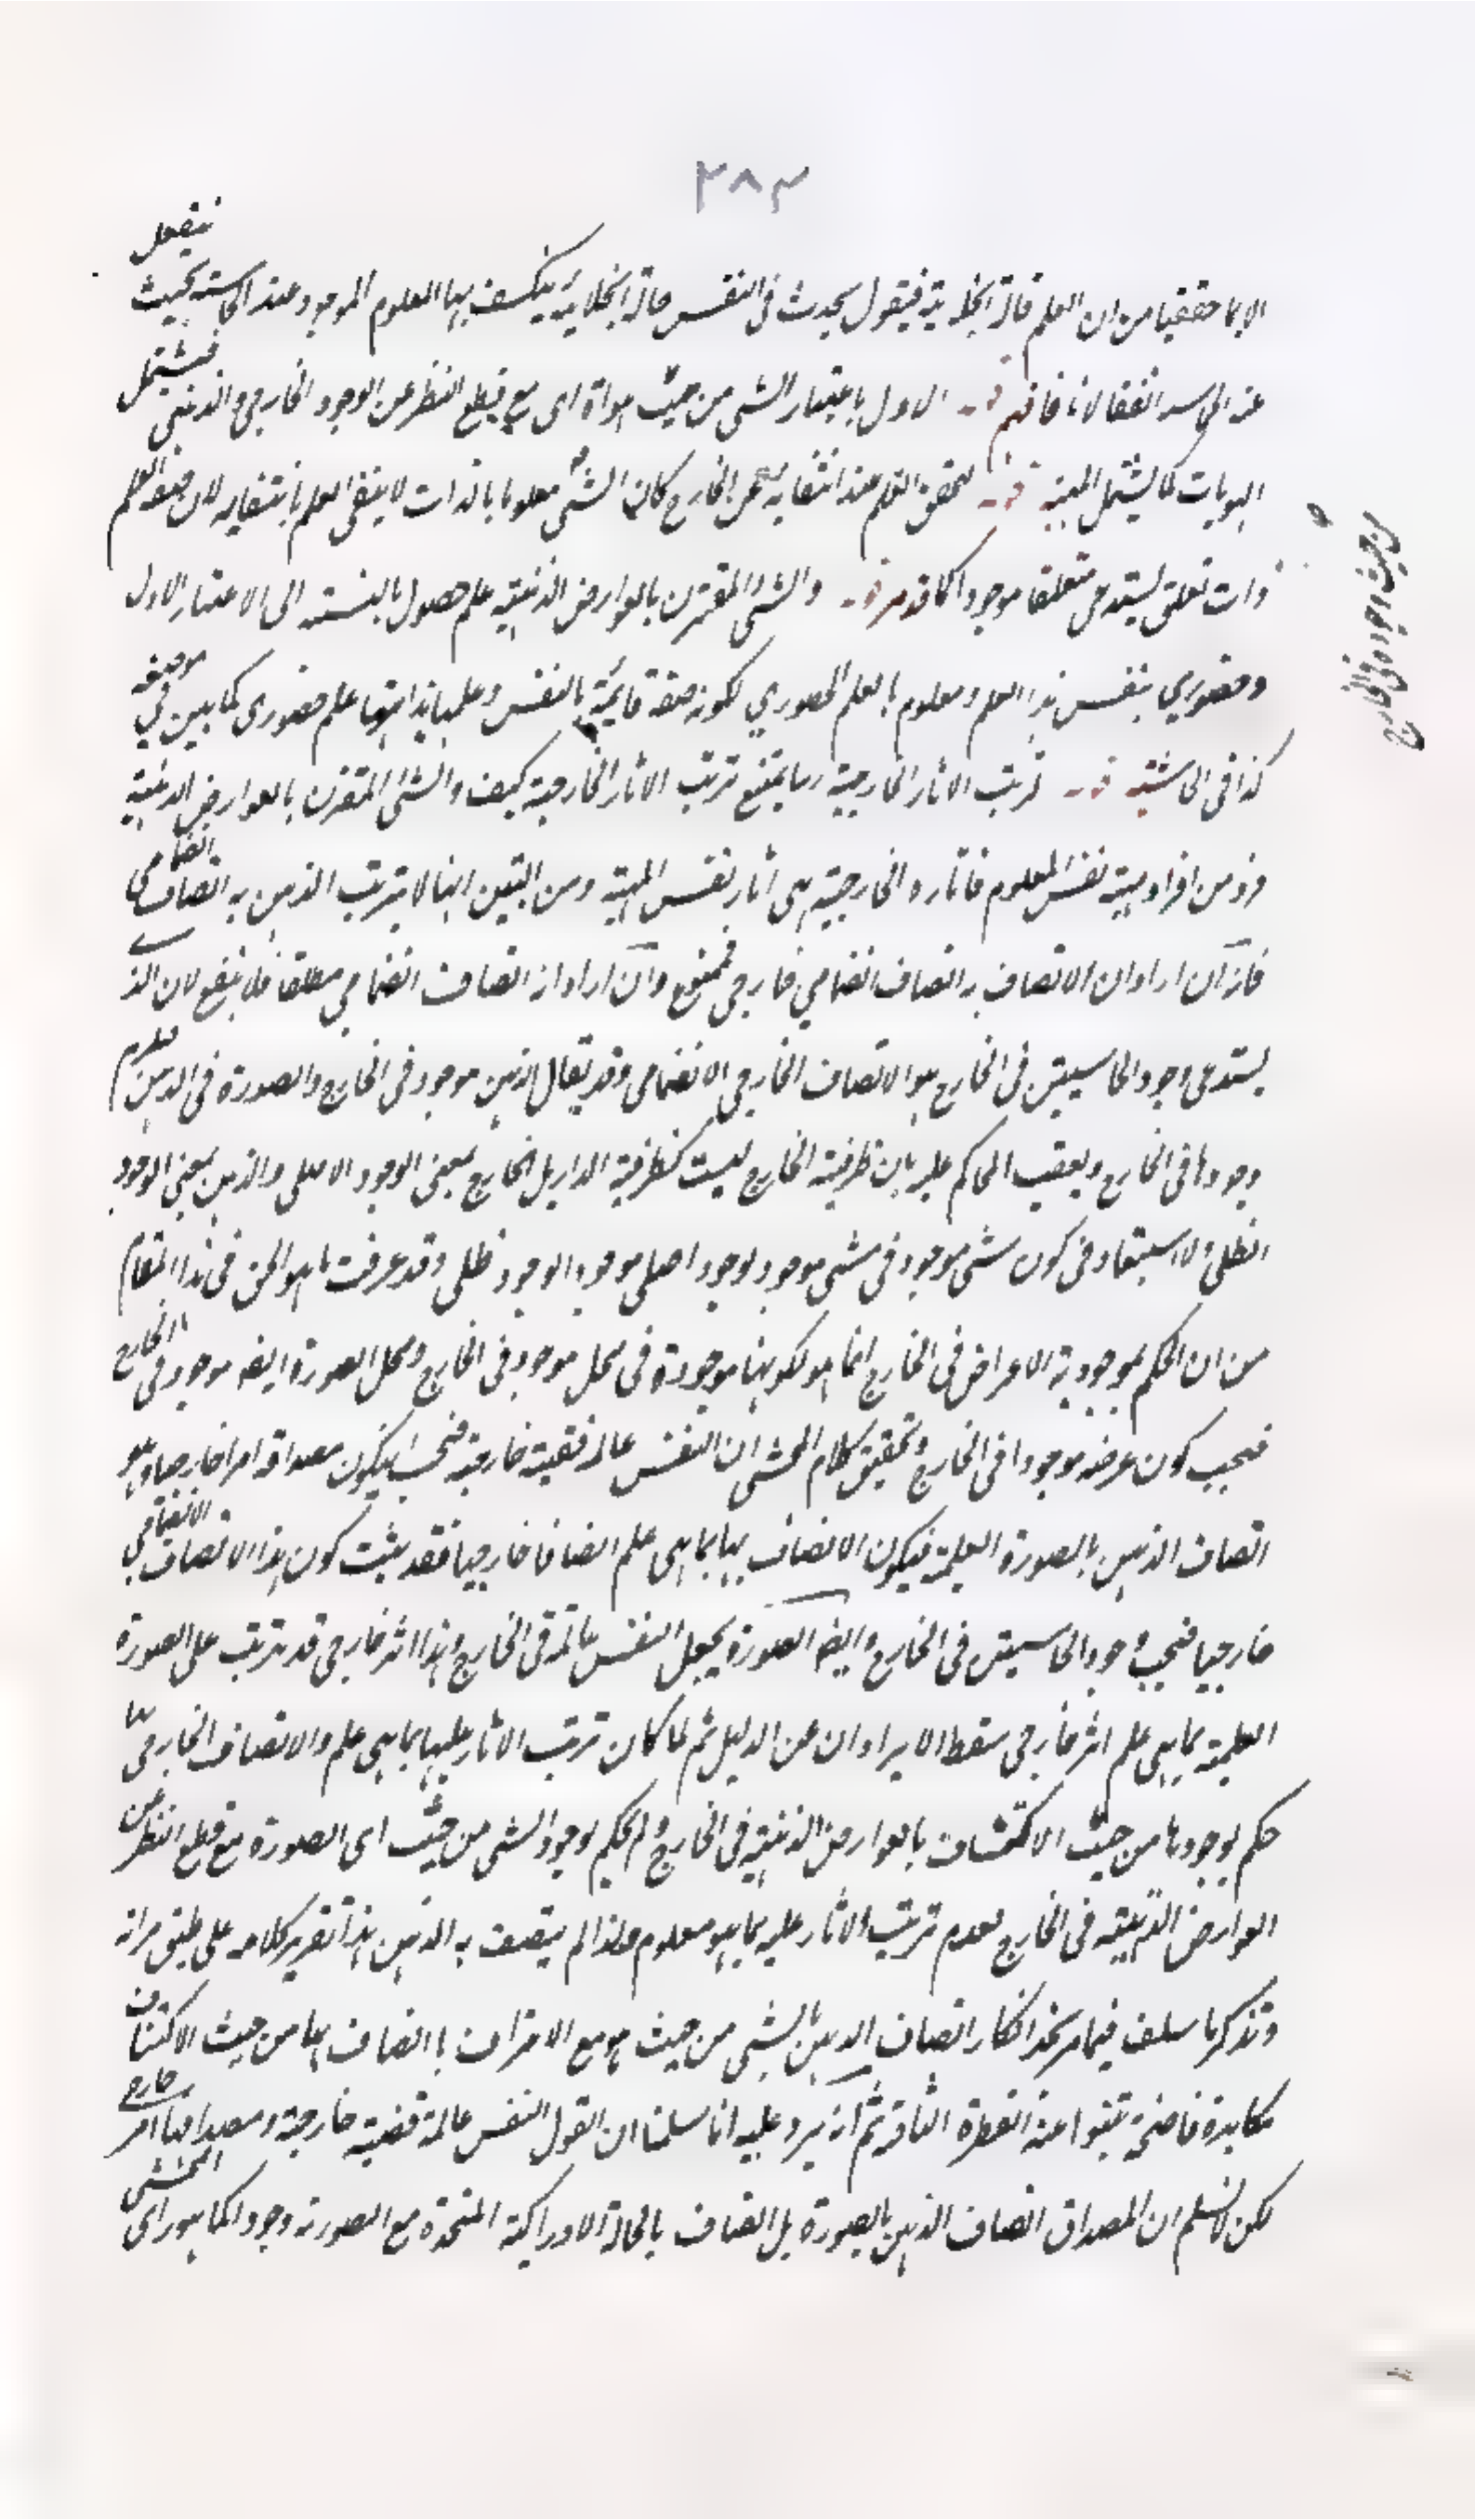 ٢٨٣
الا بما حققنا من ان العلم حالة انجلائية فيقول يحدث فى النفس حالة انجلائية ينكشف بها المعلوم الموجود عند الحاسة بحيث ينفعل
عنه الحاسة انفعالا ما فافهم قوله الاول باعتبار الشى من حيث هو اى مع قطع النظر عن الوجود الخارجى والذهنى فيشتمل
الهويات كما يشتمل المهية قوله لتحقق العلم عند انتفائه عن الخارج كان الشى معلوما بالذات لا ينتفى العلم بانتفائه لان العلم
ذات تعلق يستدعى متعلقا موجودا كما قد مر قوله والشى المقترن بالعوارض الذهنية علم حصول بالنسبة الى الاعتبار الاول
من حيث وجوده فى الخارج
وحضورى بنفس هذا العلم ومعلوم بالعلم الحضوري لكونه صفة قائمة بالنفس وعلمها بذاتها علم حضورى كما بين فى موضعه
كذا فى الحاشية قوله ترتب الاثار الخارجية ربما يمنع ترتب الاثار الخارجية كيف والشى المقترن بالعوارض الذهنية
فرد من افراد مهية نفس المعلوم فاثاره الخارجية هى اثار نفس المهية ومن البين انها لا يترتب الذهن به اتصاف انضمامى
فانه ان اراد ان الاتصاف به اتصاف انضمامي خارجى فممنوع وان اراد انه اتصاف انضمامي مطلقا فلا ينفع لان الذى
يستدعى وجود الحاشيتين فى الخارج هو الاتصاف الخارجى الانضمامى وقد يقال الذهن موجود فى الخارج والصورة فى الذهن فلزم
وجودها فى الخارج ويعقب الحاكم عليه بان ظرفية الخارج ليست كظرفية الدار بل الخارج بمعنى الوجود الاصلى والذهن بمعنى الوجود
الظلى ولا استبعاد فى كون شى موجود فى شى موجود بوجود اصلى موجودا بوجود ظلى وقد عرفت ما هو الحق فى هذا المقام
من ان الحكم بموجودية الاعراض فى الخارج انما هو لكونها موجودة فى محل موجود فى الخارج ومحل الصورة ايضه موجود فى الخارج
فيجب كون عرضه موجودا فى الخارج وتحقيق كلام المحشى ان النفس عالمة قضية خارجية فيجب ان يكون مصداقه امرا خارجيا وهو
اتصاف الذهن بالصورة العلمية فيكون الاتصاف بها بما هى علم اتصافا خارجيا فقد يثبت كون هذا الاتصاف الانضمامي
خارجيا فيجب وجود الحاشيتين فى الخارج وايضه الصورة يجعل النفس عالمة فى الخارج وهذا اثر خارجى قد يترتب على الصورة
العلمية بما هى علم اثر خارجى سقط الايرادان عن الدليل ثم لما كان ترتب الاثار عليها بما هى علم والاتصاف الخارجى بها
حكم بوجودها من حيث الاكتشاف بالعوارض الذهنية فى الخارج ولم يحكم بوجود الشى من حيث اى الصورة مع قطع النظر عن
العوارض الذهنية فى الخارج لعدم ترتب الاثار عليه بما هو معلوم ولذا لم يتصف به الذهن هذا تقرير كلامه على طبق مرامه
وتذكر ما سلف فيما مر تجد انكار اتصاف الذهن بالشى من حيث هو مع الاعتراف باتصافه بها من حيث الاكتناف
مكابرة فاضحة تتنوا عنه الفطرة الثاقبة ثم انه يرد عليه انا سلمنا ان القول النفس عالمة قضية خارجية ومصداقها امر خارجى
لكن لا نسلم ان المصداق اتصاف الذهن بالصورة بل اتصاف بالحالة الادراكية المتحدة مع الصورة وجودا كما هو راى المحشى